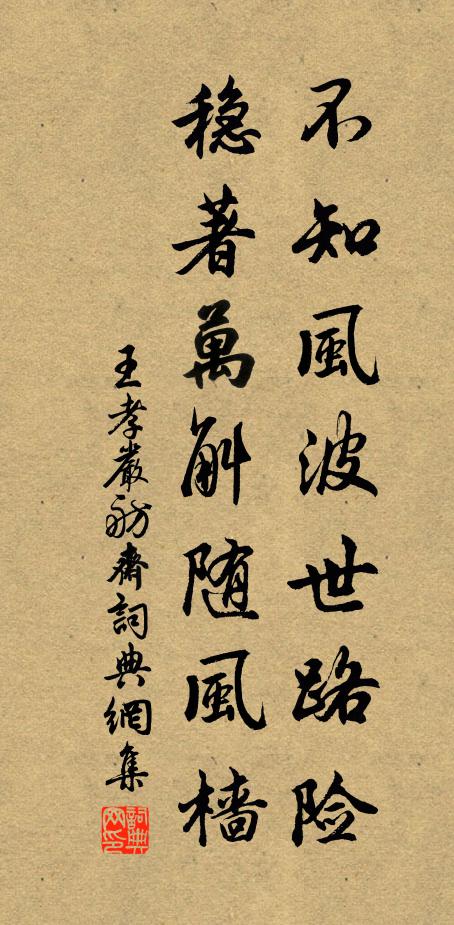 不知風波世路险
穏著萬斛随風檣
王孝嚴舫齋詞典網集
詞典网印